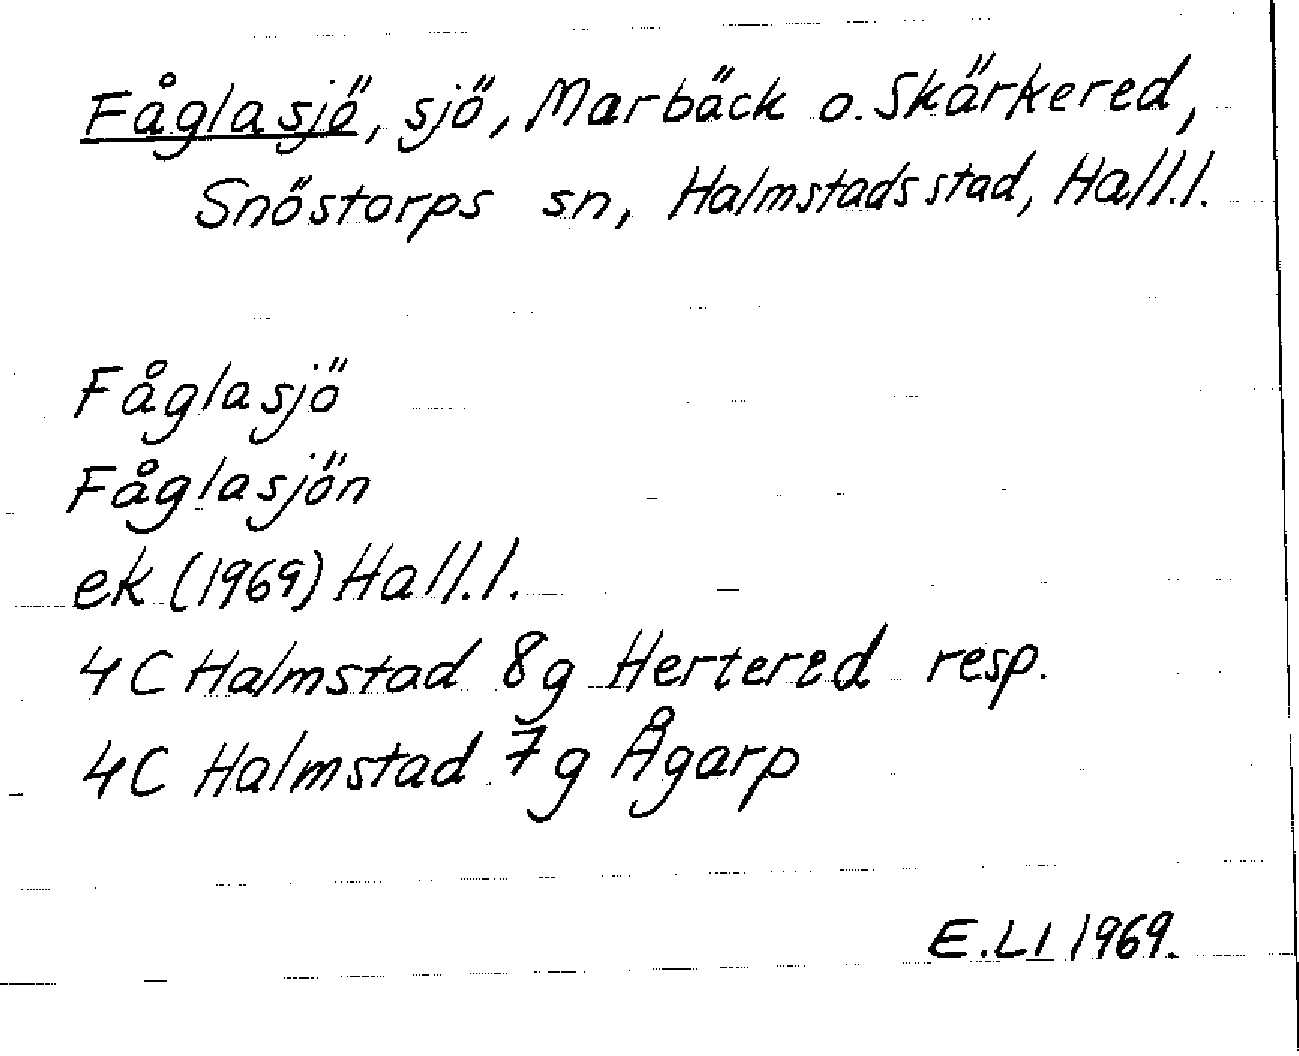 Fåglasjö, sjö, Marbäck o. Skärkered,
Snöstorps sn, Halmstads stad, Hall.l.
Fåglasjö
Fåglasjön
ek (1969) Hall.l.
4C Halmstad 8g Hertered resp.
4C Halmstad 7g Ågarp
E.LI 1969.